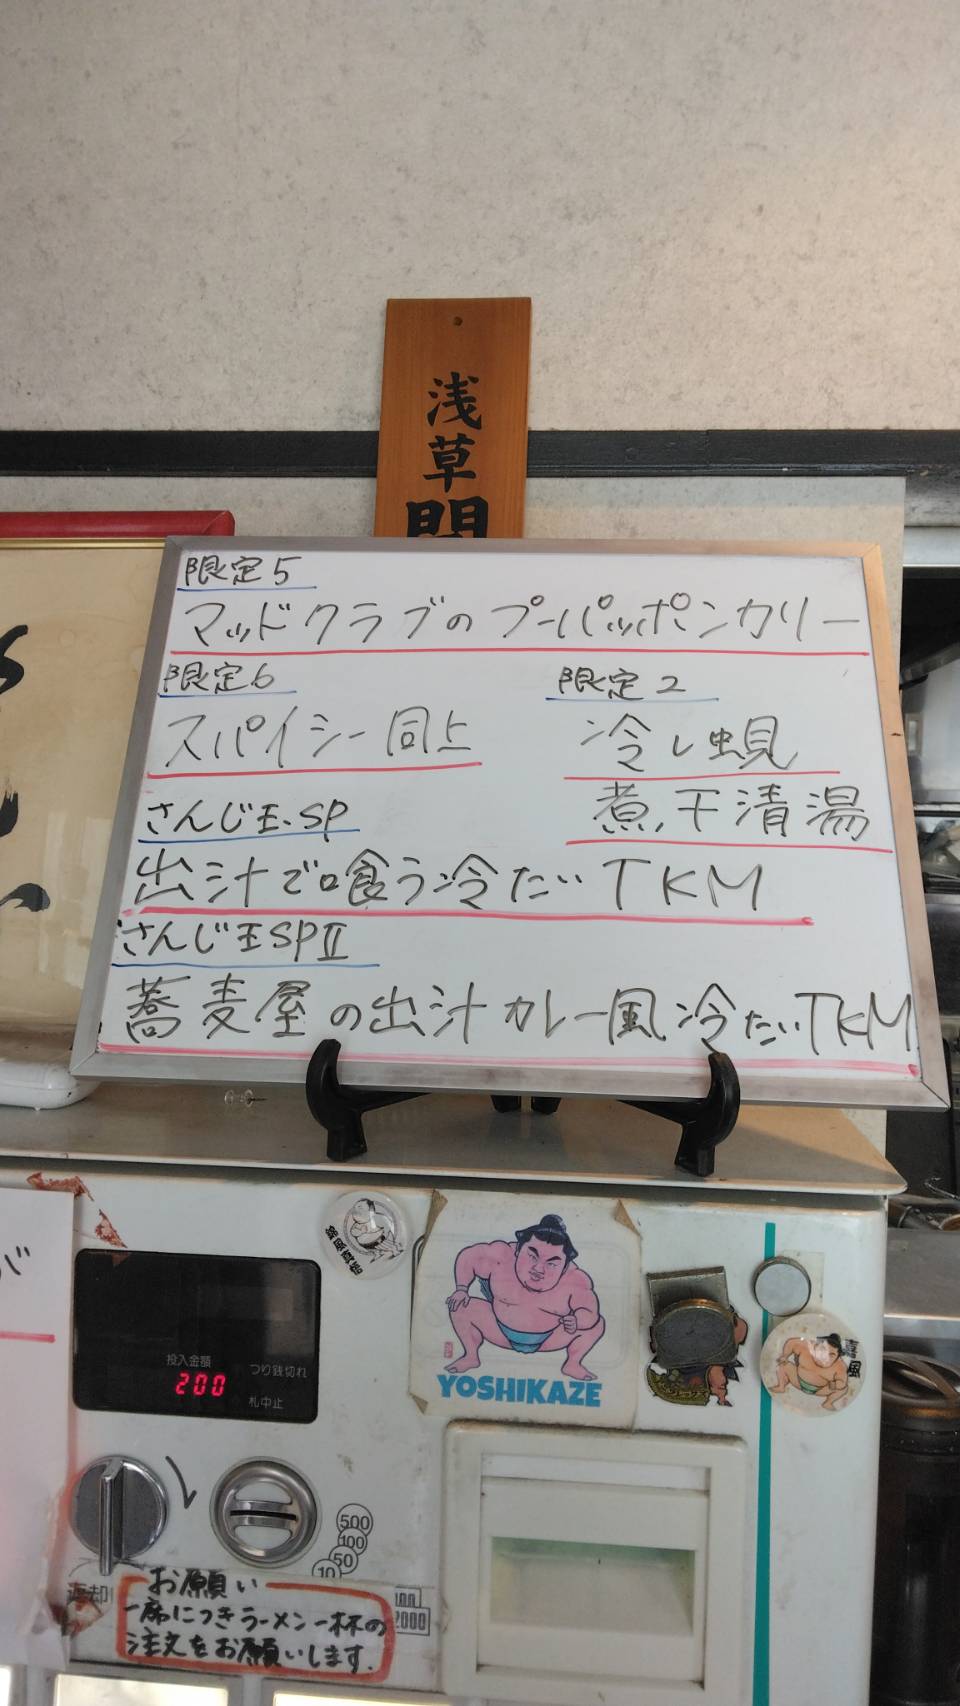 浅草
限定5
マッドクラブのプーパッポンカリー
限定6
スパイシー同上
限定2
冷し蜆
煮干清湯
さんじ玉.SP
出汁で喰う冷たいTKM
さんじ玉SPⅡ
蕎麦屋の出汁カレー風冷たいTKM
投入金額
つり銭切れ
200
札中止
YOSHIKAZE
嘉風
500
100
50
10
返却
2000
お願い
一席につきラーメン一杯の
注文をお願いします.